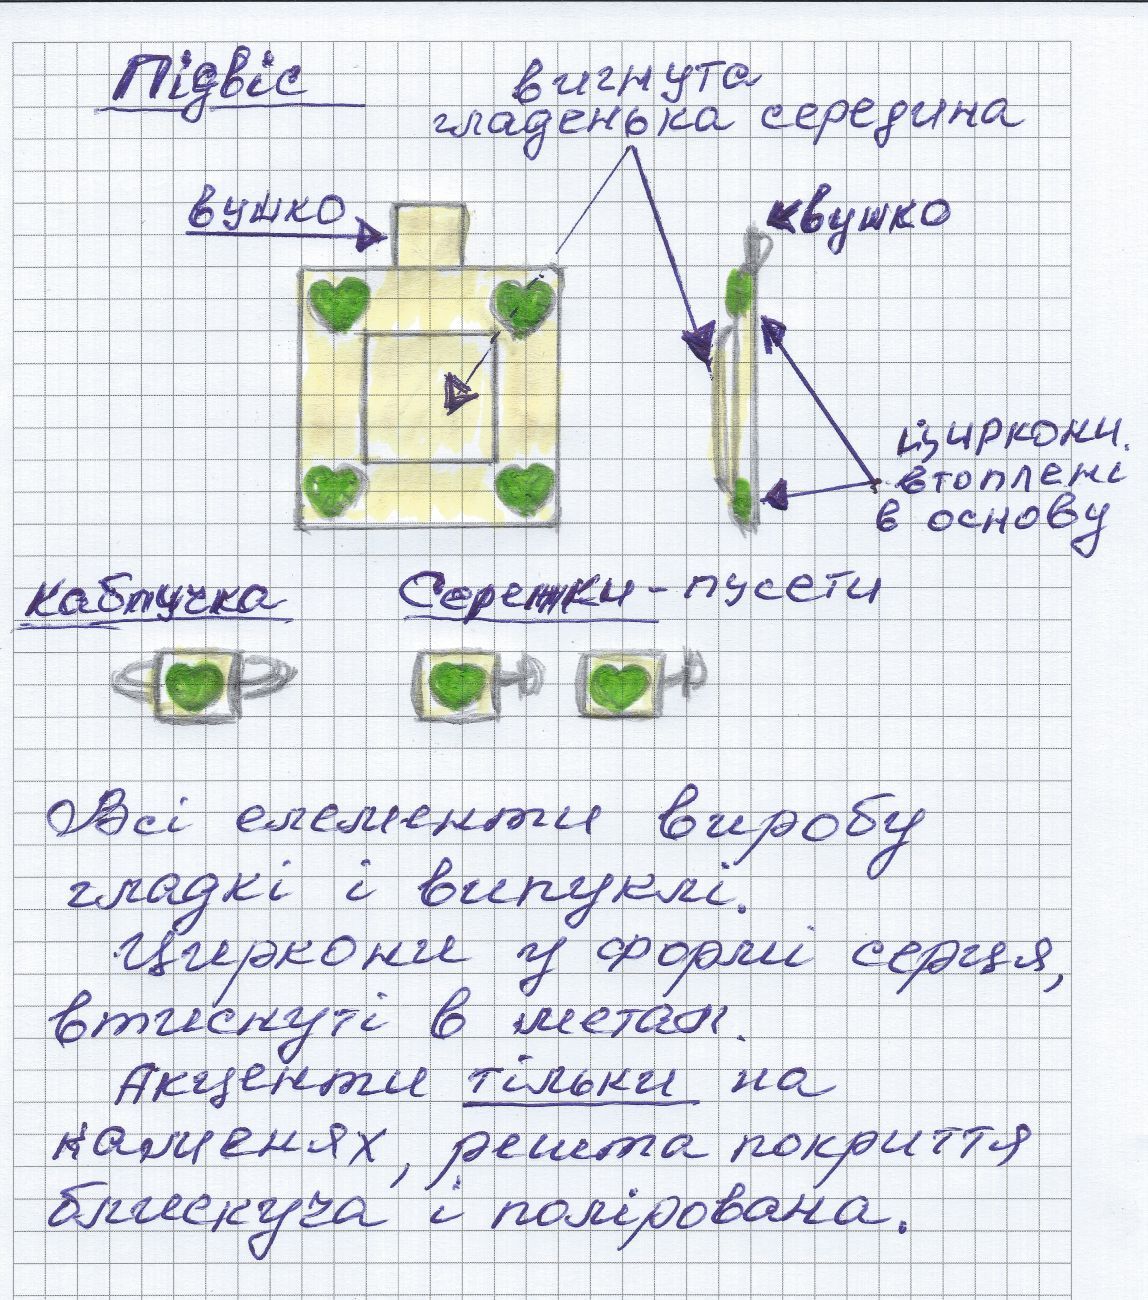 Підвіс
вигнута
гладенька середина
вушко
вушко
циркони.
втоплені
в основу
Каблучка
Сережки - пусети
Всі елементи виробу
гладкі і випуклі.
Циркони у формі серця,
втиснуті в метал.
Акценти тільки на
каменях, решта покриття
блискуча і полірована.